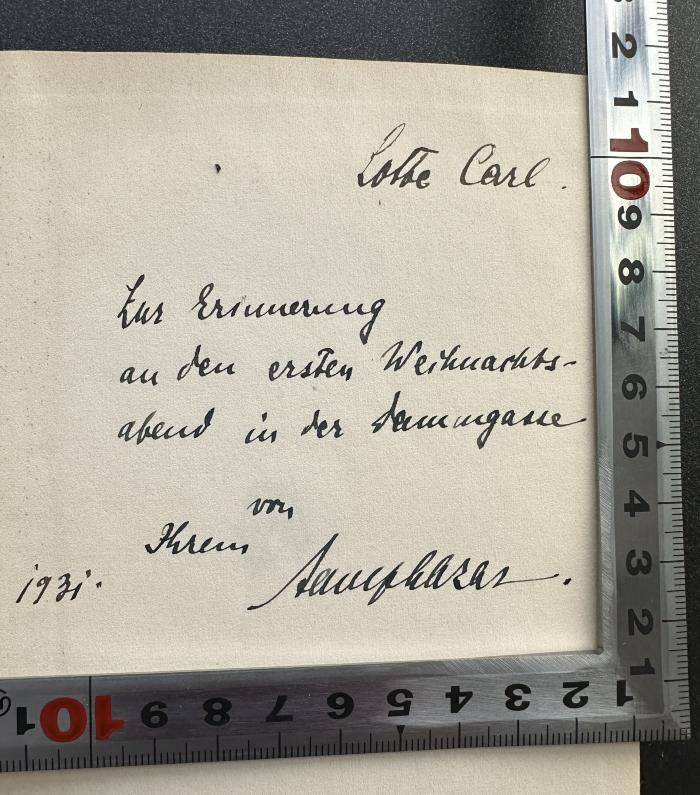 Lotte Carl.
Zur Erinnerung
an den ersten Weihnachts-
abend in der Dammgasse
von
Ihrem
1931.
2
1
10
9
8
7
6
5
4
3
2
1
10 10 9 8 7 6 5 4 3 2 1